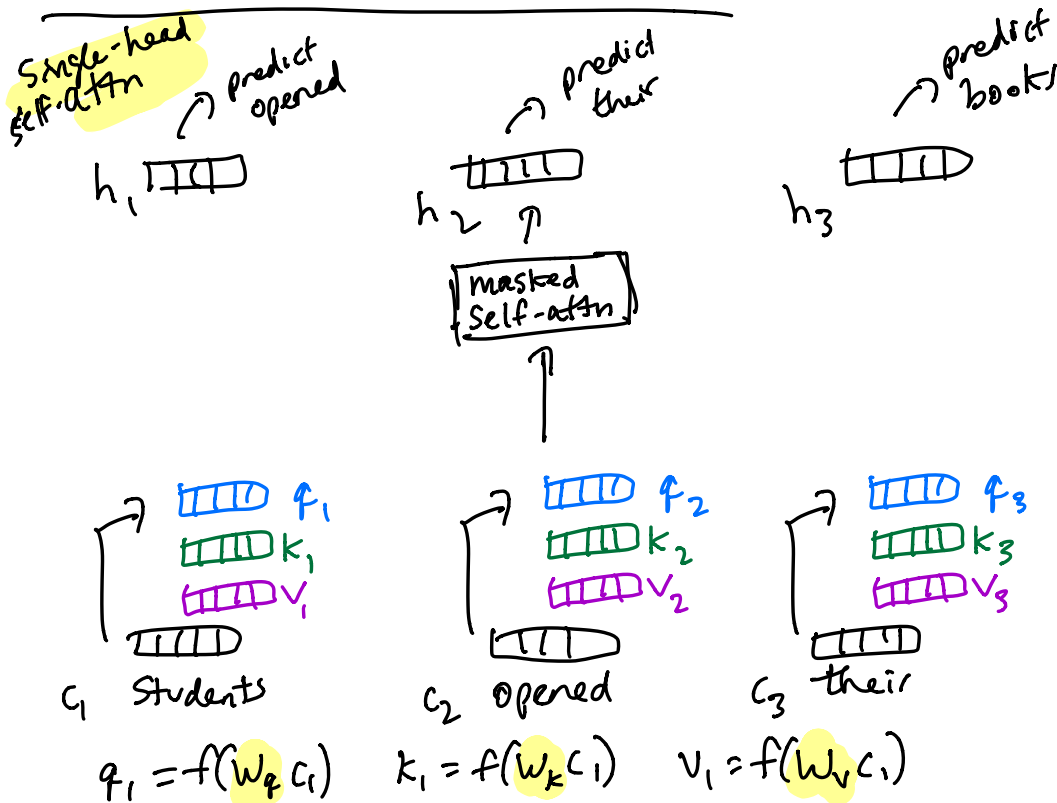 Single-head
self-attn
predict
opened
predict
their
predict
books
h₁
h₂
h₃
masked
self-attn
q₁
q₂
q₃
k₁
k₂
k₃
v₁
v₂
v₃
c₁ students
c₂ opened
c₃ their
q₁ = f(W_q c₁) k₁ = f(W_k c₁) v₁ = f(W_v c₁)